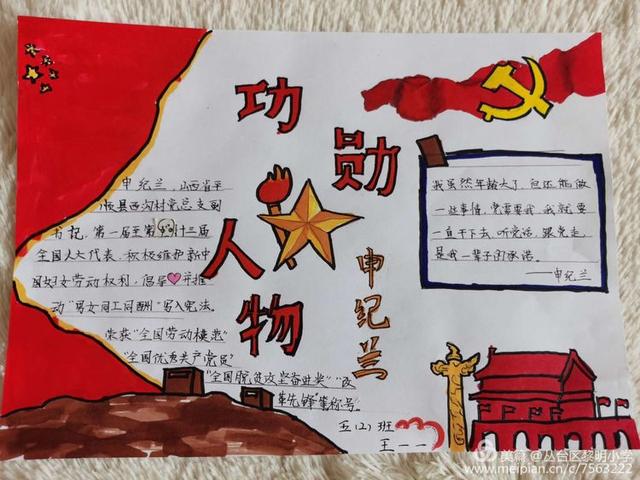 功勋
人物
申纪兰
申纪兰，山西省平
顺县西沟村党总支副
书记，第一届至第十三届
全国人大代表，积极维护新中
国妇女劳动权利，倡导并推
动"男女同工同酬"写入宪法。
荣获"全国劳动模范"
"全国优秀共产党员"
"全国脱贫攻坚奋进奖""改
革先锋"等称号。
我虽然年龄大了，但还能做
一些事情，党要要我，我就要
一直干下去，听党话，跟党走
是我一辈子的承诺。
——申纪兰
五(2)班
王一一
美篇@丛台区黎明小学
www.meipian.cn/c/7563222